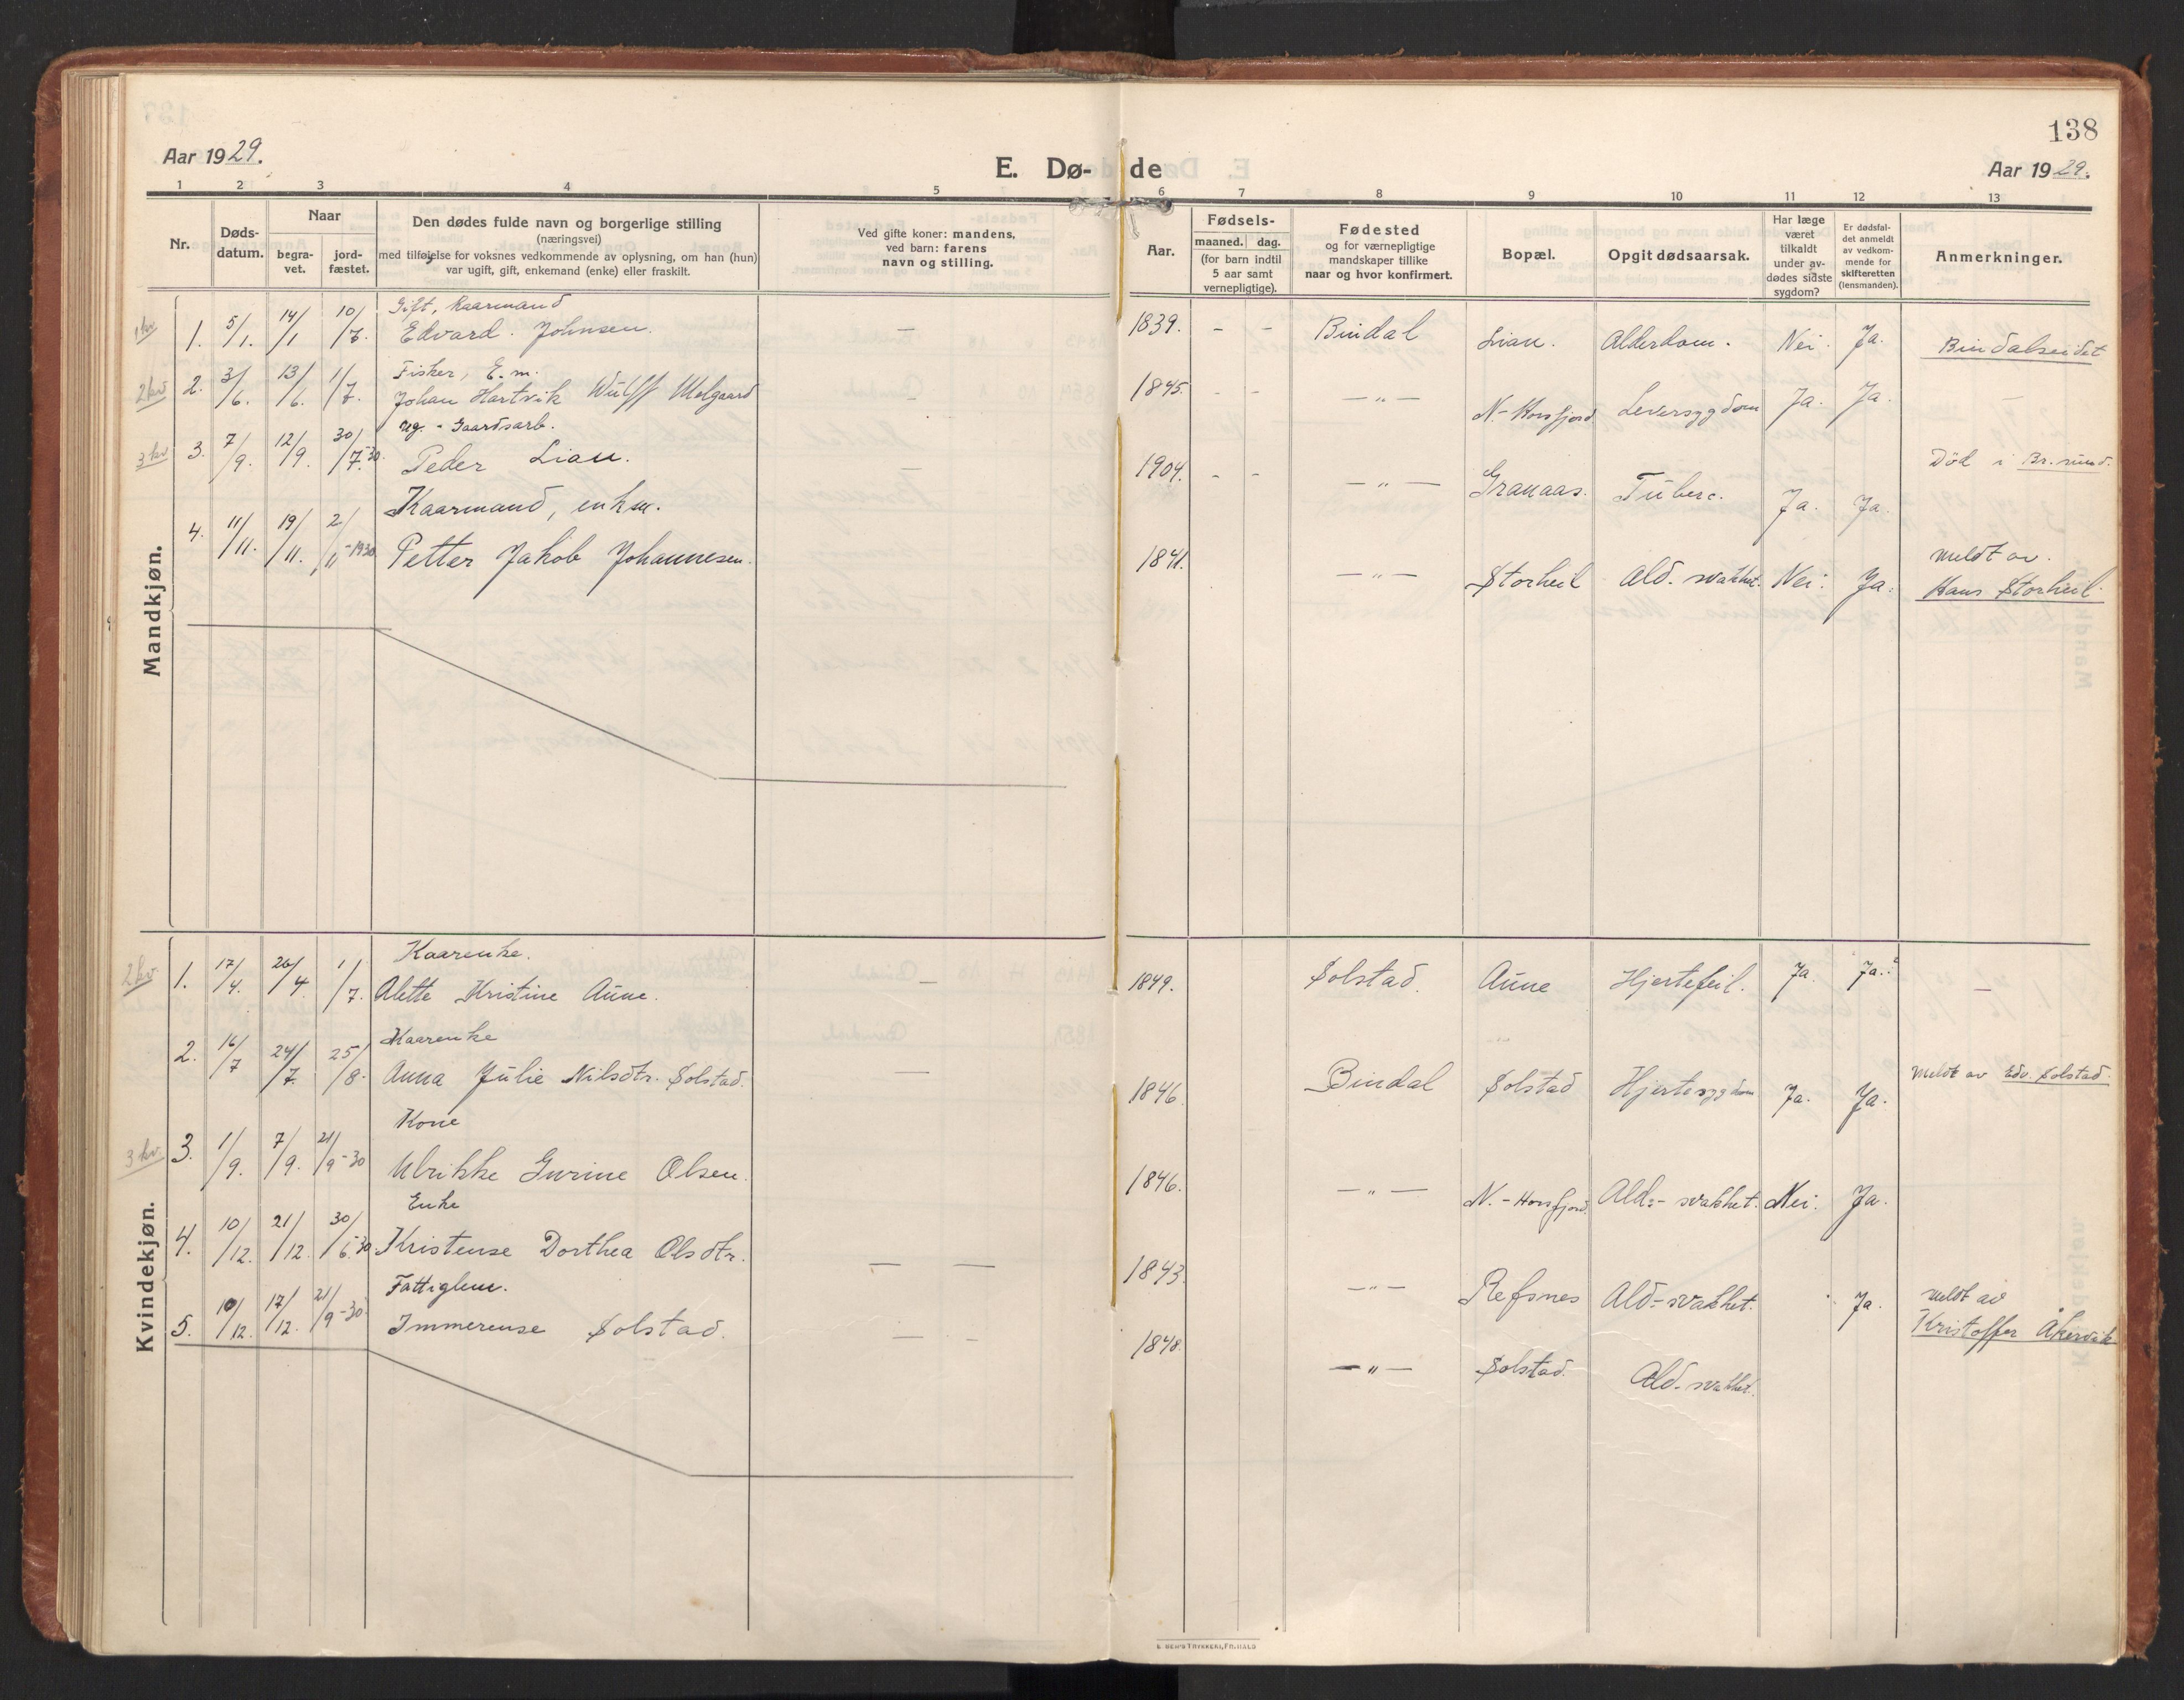 138
Aar 1929.
E. Dø- de
Aar 1929.
1 2 3 4 5 6 7 8 9 10 11 12 13
Nr.
Døds-
datum.
Naar
begra-
vet.
jord-
fæstet.
Den dødes fulde navn og borgerlige stilling
(næringsvei)
med tilføielse for voksnes vedkommende av oplysning, om han (hun)
var ugift, gift, enkemand (enke) eller fraskilt.
Ved gifte koner: mandens,
ved barn: farens
navn og stilling.
Aar.
Fødsels-
maaned. dag.
(for barn indtil
5 aar samt
vernepligtige).
Fødested
og for værnepligtige
mandskaper tillike
naar og hvor konfirmert.
Bopæl.
Opgit dødsaarsak.
Har læge
været
tilkaldt
under av-
dødes sidste
sygdom?
Er dødsfal-
det anmeldt
av vedkom-
mende for
skifteretten
(lensmanden).
Anmerkninger.
Mandkjøn.
Gift, Kaarmand
1kv 1. 5/1. 14/1 10/7. Edvard Johnsen. — 1839. - - Bindal Lian. Alderdom. Nei. Ja. Bindalseidet
Fisker, E.m.
2kv 2. 3/6. 13/6. 1/7. Johan Hartvik Wulff Melgaard — 1845. - - —"— N-Horsfjord Leversygdom Ja. Ja. —
Ug. - Gaardsarb.
3kv 3. 7/9. 12/9. 30/7.-30. Peder Lian. — 1904. - - —"— Granaas. Tuberc. Ja. Ja. Död i Br.sund.
Kaarmand, enkm.
4. 11/11. 19/11. 2/11-1930 Petter Jakob Johannesen. 1841. —"— Storheil Ald. svakhet. Nei. Ja. Meldt av.
Hans Storheil.
Kvindekjøn.
Kaarenke.
2kv. 1. 17/4. 26/4 1/7. Alette Kristine Aune. — 1849. Solstad. Aune Hjertefeil. Ja. Ja. —
Kaarenke
2. 16/7 24/7. 25/8. Anna Julie Nilsdtr. Solstad. — 1846. Bindal Solstad Hjertesygdom Ja. Ja. Meldt av Edv. Solstad.
Kone
3kv. 3. 1/9. 7/9. 21/9-30 Ulrikke Gurine Olsen. 1846. —"— N.-Horsfjord. Ald.- svakhet. Nei. Ja.
Enke
4. 10/12. 21/12. 30/6.30 Kristense Dorthea Olsdtr. — — 1843. —"— Refsnes Ald-svakhet. Ja. Meldt av
Kristoffer Åkervik
Fattiglem.
5. 10/12. 17/12. 21/9-30 Immerense Solstad. — - 1848. —"— Solstad. Ald-svakhet.
E. SEM'S TRYKKERI, FR.HALD